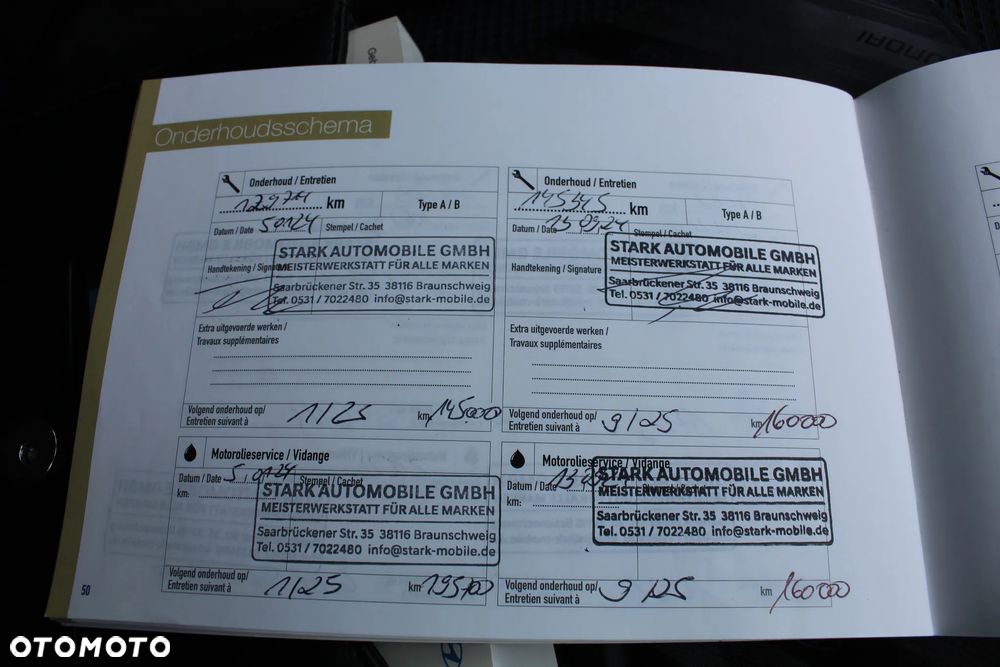 Onderhoudsschema
Onderhoud / Entretien
km
Type A / B
Datum / Date
Stempel / Cachet
STARK AUTOMOBILE GMBH
MEISTERWERKSTATT FÜR ALLE MARKEN
Saarbrückener Str. 35 38116 Braunschweig
Tel. 0531 / 7022480 info@stark-mobile.de
Handtekening / Signature
Extra uitgevoerde werken /
Travaux supplémentaires
Volgend onderhoud op/
Entretien suivant à
1/25
km 145000
Motorolieservice / Vidange
Datum / Date
Stempel / Cachet
km:
STARK AUTOMOBILE GMBH
MEISTERWERKSTATT FÜR ALLE MARKEN
Saarbrückener Str. 35 38116 Braunschweig
Tel. 0531 / 7022480 info@stark-mobile.de
Volgend onderhoud op/
Entretien suivant à
1/25
km
50
Onderhoud / Entretien
145345 km
Type A / B
Datum / Date 13.09.24
Stempel / Cachet
STARK AUTOMOBILE GMBH
MEISTERWERKSTATT FÜR ALLE MARKEN
Saarbrückener Str. 35 38116 Braunschweig
Tel. 0531 / 7022480 info@stark-mobile.de
Handtekening / Signature
Extra uitgevoerde werken /
Travaux supplémentaires
Volgend onderhoud op/
Entretien suivant à
9/25
km 160000
Motorolieservice / Vidange
Datum / Date
km:
STARK AUTOMOBILE GMBH
MEISTERWERKSTATT FÜR ALLE MARKEN
Saarbrückener Str. 35 38116 Braunschweig
Tel. 0531 / 7022480 info@stark-mobile.de
Volgend onderhoud op/
Entretien suivant à
9/25
km 160000
OTOMOTO